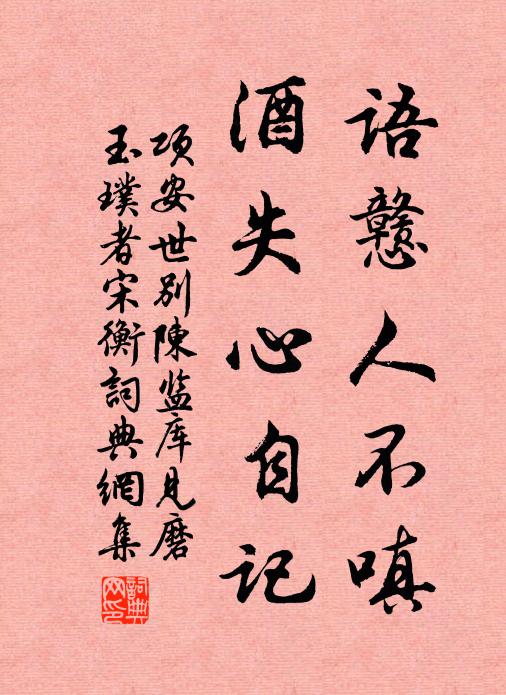 語戆人不嗔
酒失心自记
项安世别陳监库見磨
玉璞者宋衡詞典網集
詞典网印